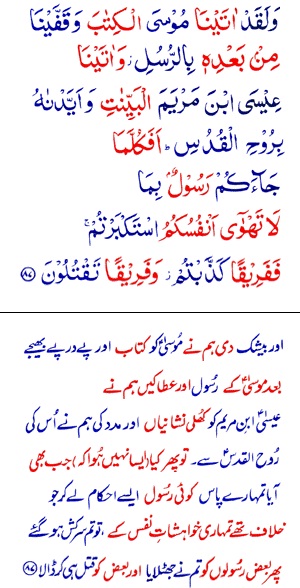 وَلَقَدْ اٰتَيْنَا مُوْسَى الْكِتٰبَ وَقَفَّيْنَا
مِنْ بَعْدِهٖ بِالرُّسُلِ ز وَاٰتَيْنَا
عِيْسَى ابْنَ مَرْيَمَ الْبَيِّنٰتِ وَاَيَّدْنٰهُ
بِرُوْحِ الْقُدُسِ ؕ اَفَكُلَّمَا
جَآءَكُمْ رَسُوْلٌۢ بِمَا
لَا تَهْوٰٓى اَنْفُسُكُمُ اسْتَكْبَرْتُمْ ۚ
فَفَرِيْقًا كَذَّبْتُمْ ز وَفَرِيْقًا تَقْتُلُوْنَ ﴿۸۷﴾
اور بیشک دی ہم نے مُوسٰیؑ کو کتاب اور پے در پے بھیجے
بعد موسٰیؑ کے رسُول اور عطا کیں ہم نے
عیسٰیؑ ابنِ مریم کو کھلی نشانیاں اور مدد کی ہم نے اُس کی
رُوح القدسؑ سے۔ تو پھر کیا (ایسا نہیں ہُوا کہ) جب بھی
آیا تمہارے پاس کوئی رسول ایسے احکام لے کر جو
خلاف تھے تمہاری خواہشاتِ نفس کے، تو تم سرکش ہو گئے
پھر بعض رسولوں کو تم نے جھٹلایا اور بعض کو قتل ہی کر ڈالا ﴿۸۷﴾